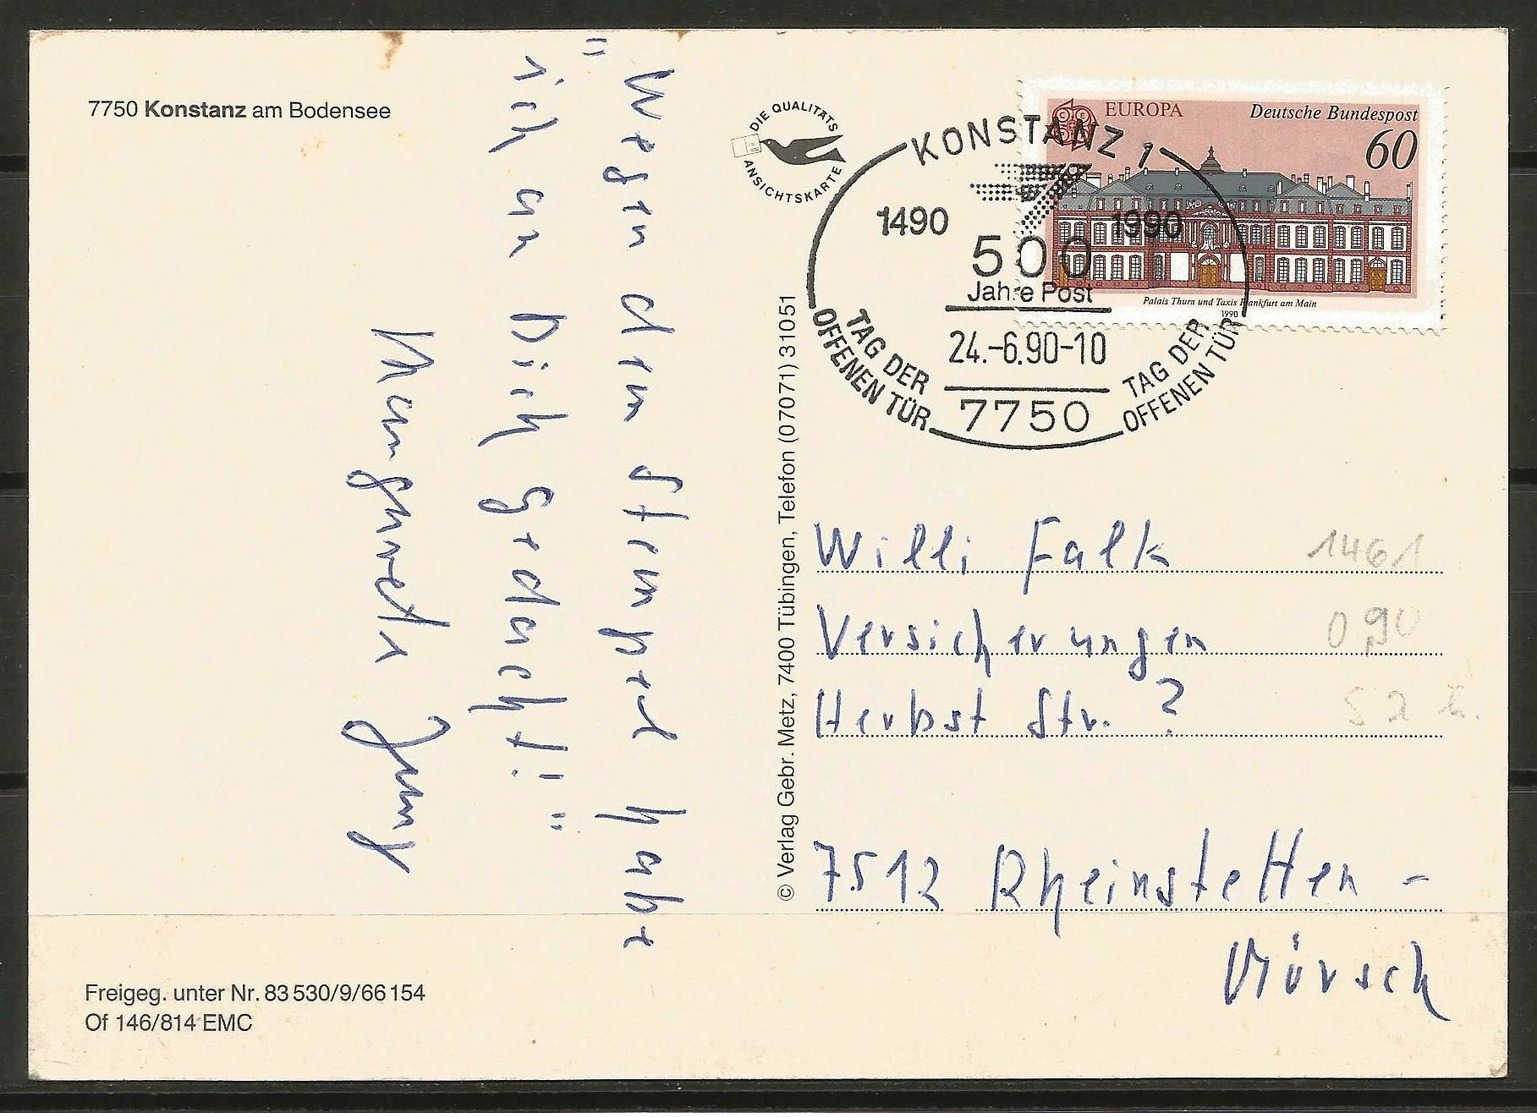 7750 Konstanz am Bodensee
"Wegen dem Stempel habe
ich an Dich gedacht!"
Margarete Jung
Freigeg. unter Nr. 83 530/9/66 154
Of 146/814 EMC
DIE QUALITÄTS
ANSICHTSKARTE
© Verlag Gebr. Metz, 7400 Tübingen, Telefon (07071) 31051
EUROPA Deutsche Bundespost
60
Palais Thurn und Taxis Frankfurt am Main
1990
KONSTANZ 1
1490 1990
500
Jahre Post
24.-6.90-10
7750
TAG DER
OFFENEN TÜR
TAG DER
OFFENEN TÜR
Willi Falk
Versicherungen
Herbst Str. ?
7512 Rheinstetten -
Mörsch
1461
090